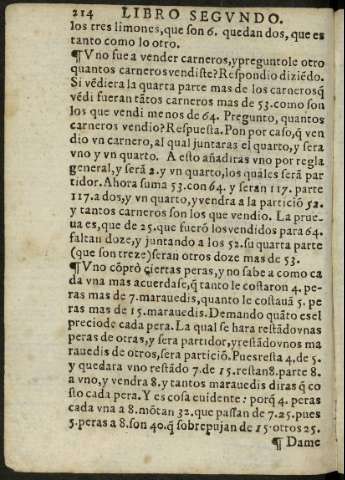 214 LIBRO SEGVNDO.
los tres limones, que son 6. quedan dos, que es
tanto como lo otro.
¶Vno fue a vender carneros, y preguntole otro
quantos carneros vendiste? Respondio diziēdo.
Si vēdiera la quarta parte mas de los carneros q̄
vēdi fueran tātos carneros mas de 53. como son
los que vendi menos de 64. Pregunto, quantos
carneros vendio? Respuesta. Pon por caso, q̄ ven
dio vn carnero, al qual juntaras el quarto, y sera
vno y vn quarto. A esto añadiras vno por regla
general, y será 2. y vn quarto, los quales será par
tidor. Ahora suma 53. con 64. y seran 117. parte
117. a dos, y vn quarto, y vendra a la partició 52.
y tantos carneros son los que vendio. La prue-
ua es, que de 25. que fueró los vendidos para 64.
faltan doze, y juntando a los 52. su quarta parte
(que son treze) seran otros doze mas de 53.
¶Vno cōprò çiertas peras, y no sabe a como ca
da vna mas acuerdase, q̄ tanto le costaron 4. pe-
ras mas de 7. marauedis, quanto le costauā 5. pe
ras mas de 15. marauedis. Demando quāto es el
precio de cada pera. La qual se hara restādo vnas
peras de otras, y sera partidor, y restādo vnos ma
rauedis de otros, sera partició. Pues resta 4, de 5.
y quedara vno restādo 7. de 15. restan 8. parte 8.
a vno, y vendra 8. y tantos marauedis diras q̄ co
sto cada pera. Y es cosa euidente: porq̄ 4. peras
cada vna a 8. mōtan 32. que passan de 7. 25. pues
5. peras a 8. son 40. q̄ sobrepujan de 15. otros 25.
¶ Dame